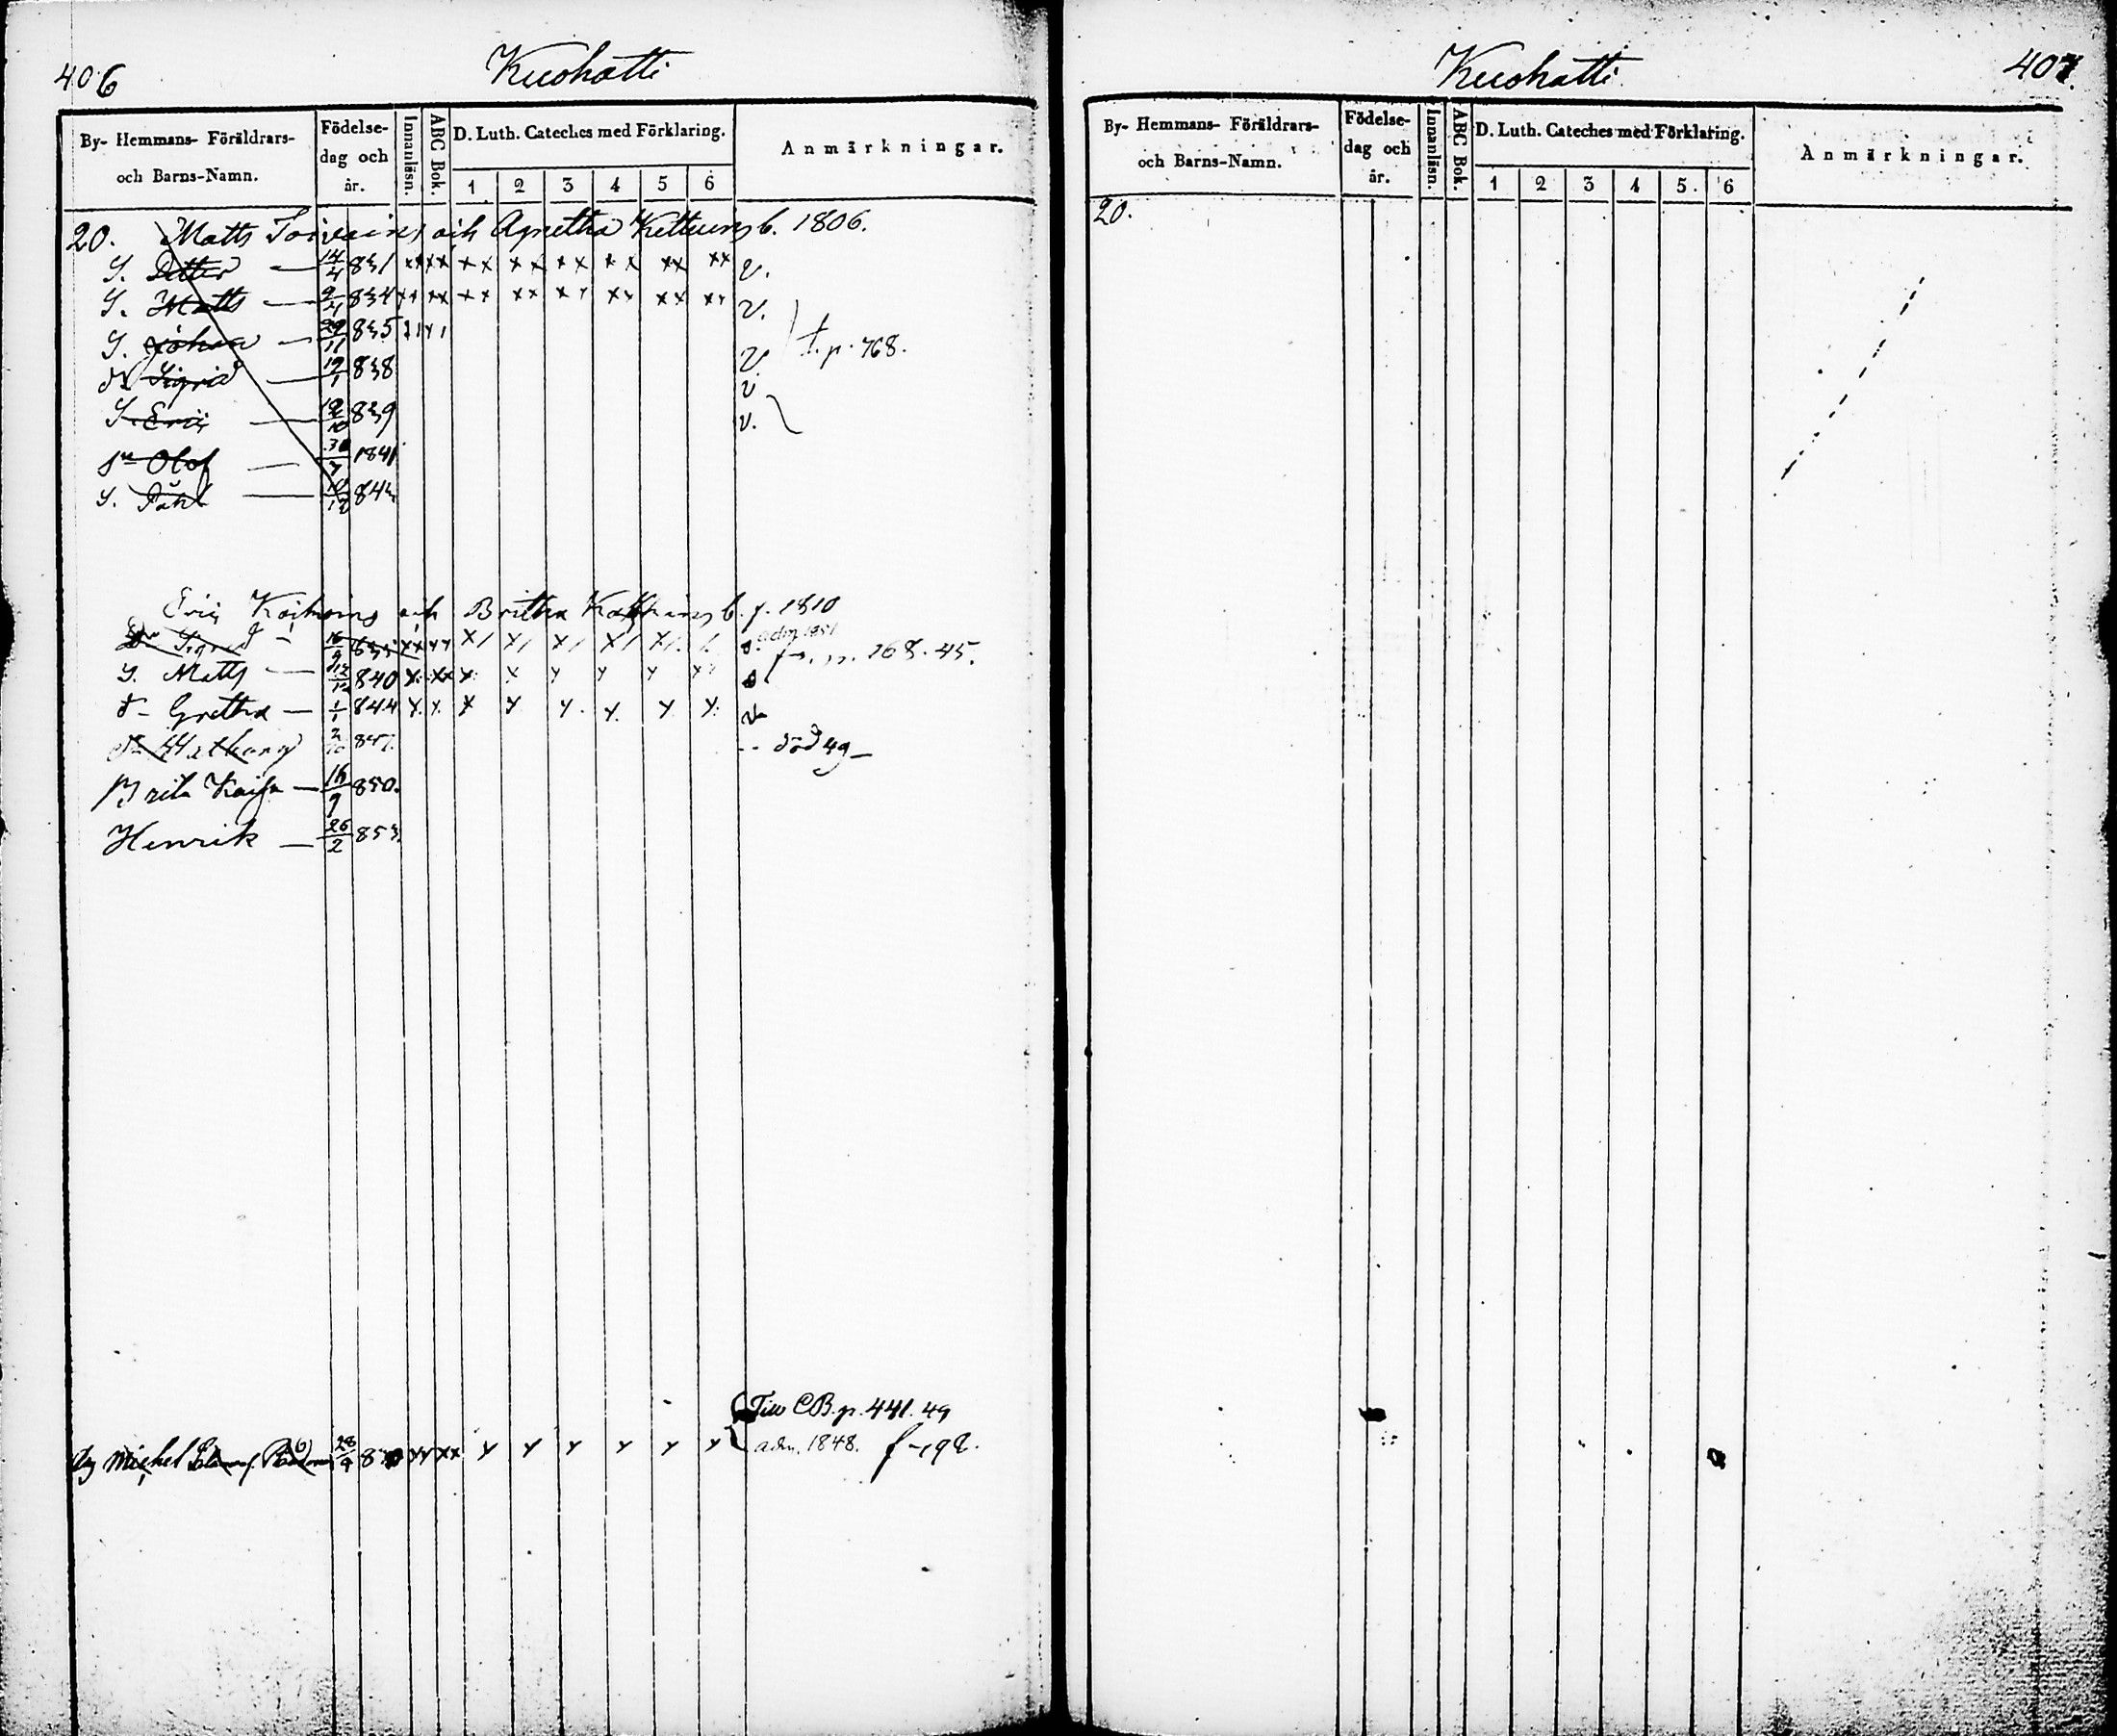 406 Kuohatti
By- Hemmans- Föräldrars- och Barns-Namn. Födelse-dag och år. Innanläsn. ABC Bok. D. Luth. Cateches med Förklaring. 1 2 3 4 5 6 Anmärkningar.
20. Matts Toivains och Agnetha Kettuns b. 1806.
S. Petter — 14/4 831 xx xx xx xx xx xx xx xx v.
S. Matts — 9/4 834 xx xx xx xx xx xx xx xx v.
S. Johan — 29/11 835 v t. p. 768.
dr Sigrid — 12/1 838 v
S. Eric — 12/10 839 v.
sn Olof — 30/7 1841
S. Påhl — 10/12 843
Eric Koihoins och Britha b. f. 1810
Dr Sigrid 16/9 835 xx xx x/ x/ x/ x/ x/ adm 1851
p. 268. 45.
S. Matts — 840 x xx x x y y y
d- Gretha — 1/1 844 y y. x y y. y. y y. v
847. -- död 49 —
Brita Kaisa — 16/9 850.
Henrik — 26/2 853.
Till CB. p. 441. 49
Michel 28/9 xx xx y y y y y y adm. 1848. f -192.
Kuohatti. 407.
By- Hemmans- Föräldrars- och Barns-Namn. Födelse-dag och år. Innanläsn. ABC Bok. D. Luth. Cateches med Förklaring. 1 2 3 4 5. 6 Anmärkningar.
20.